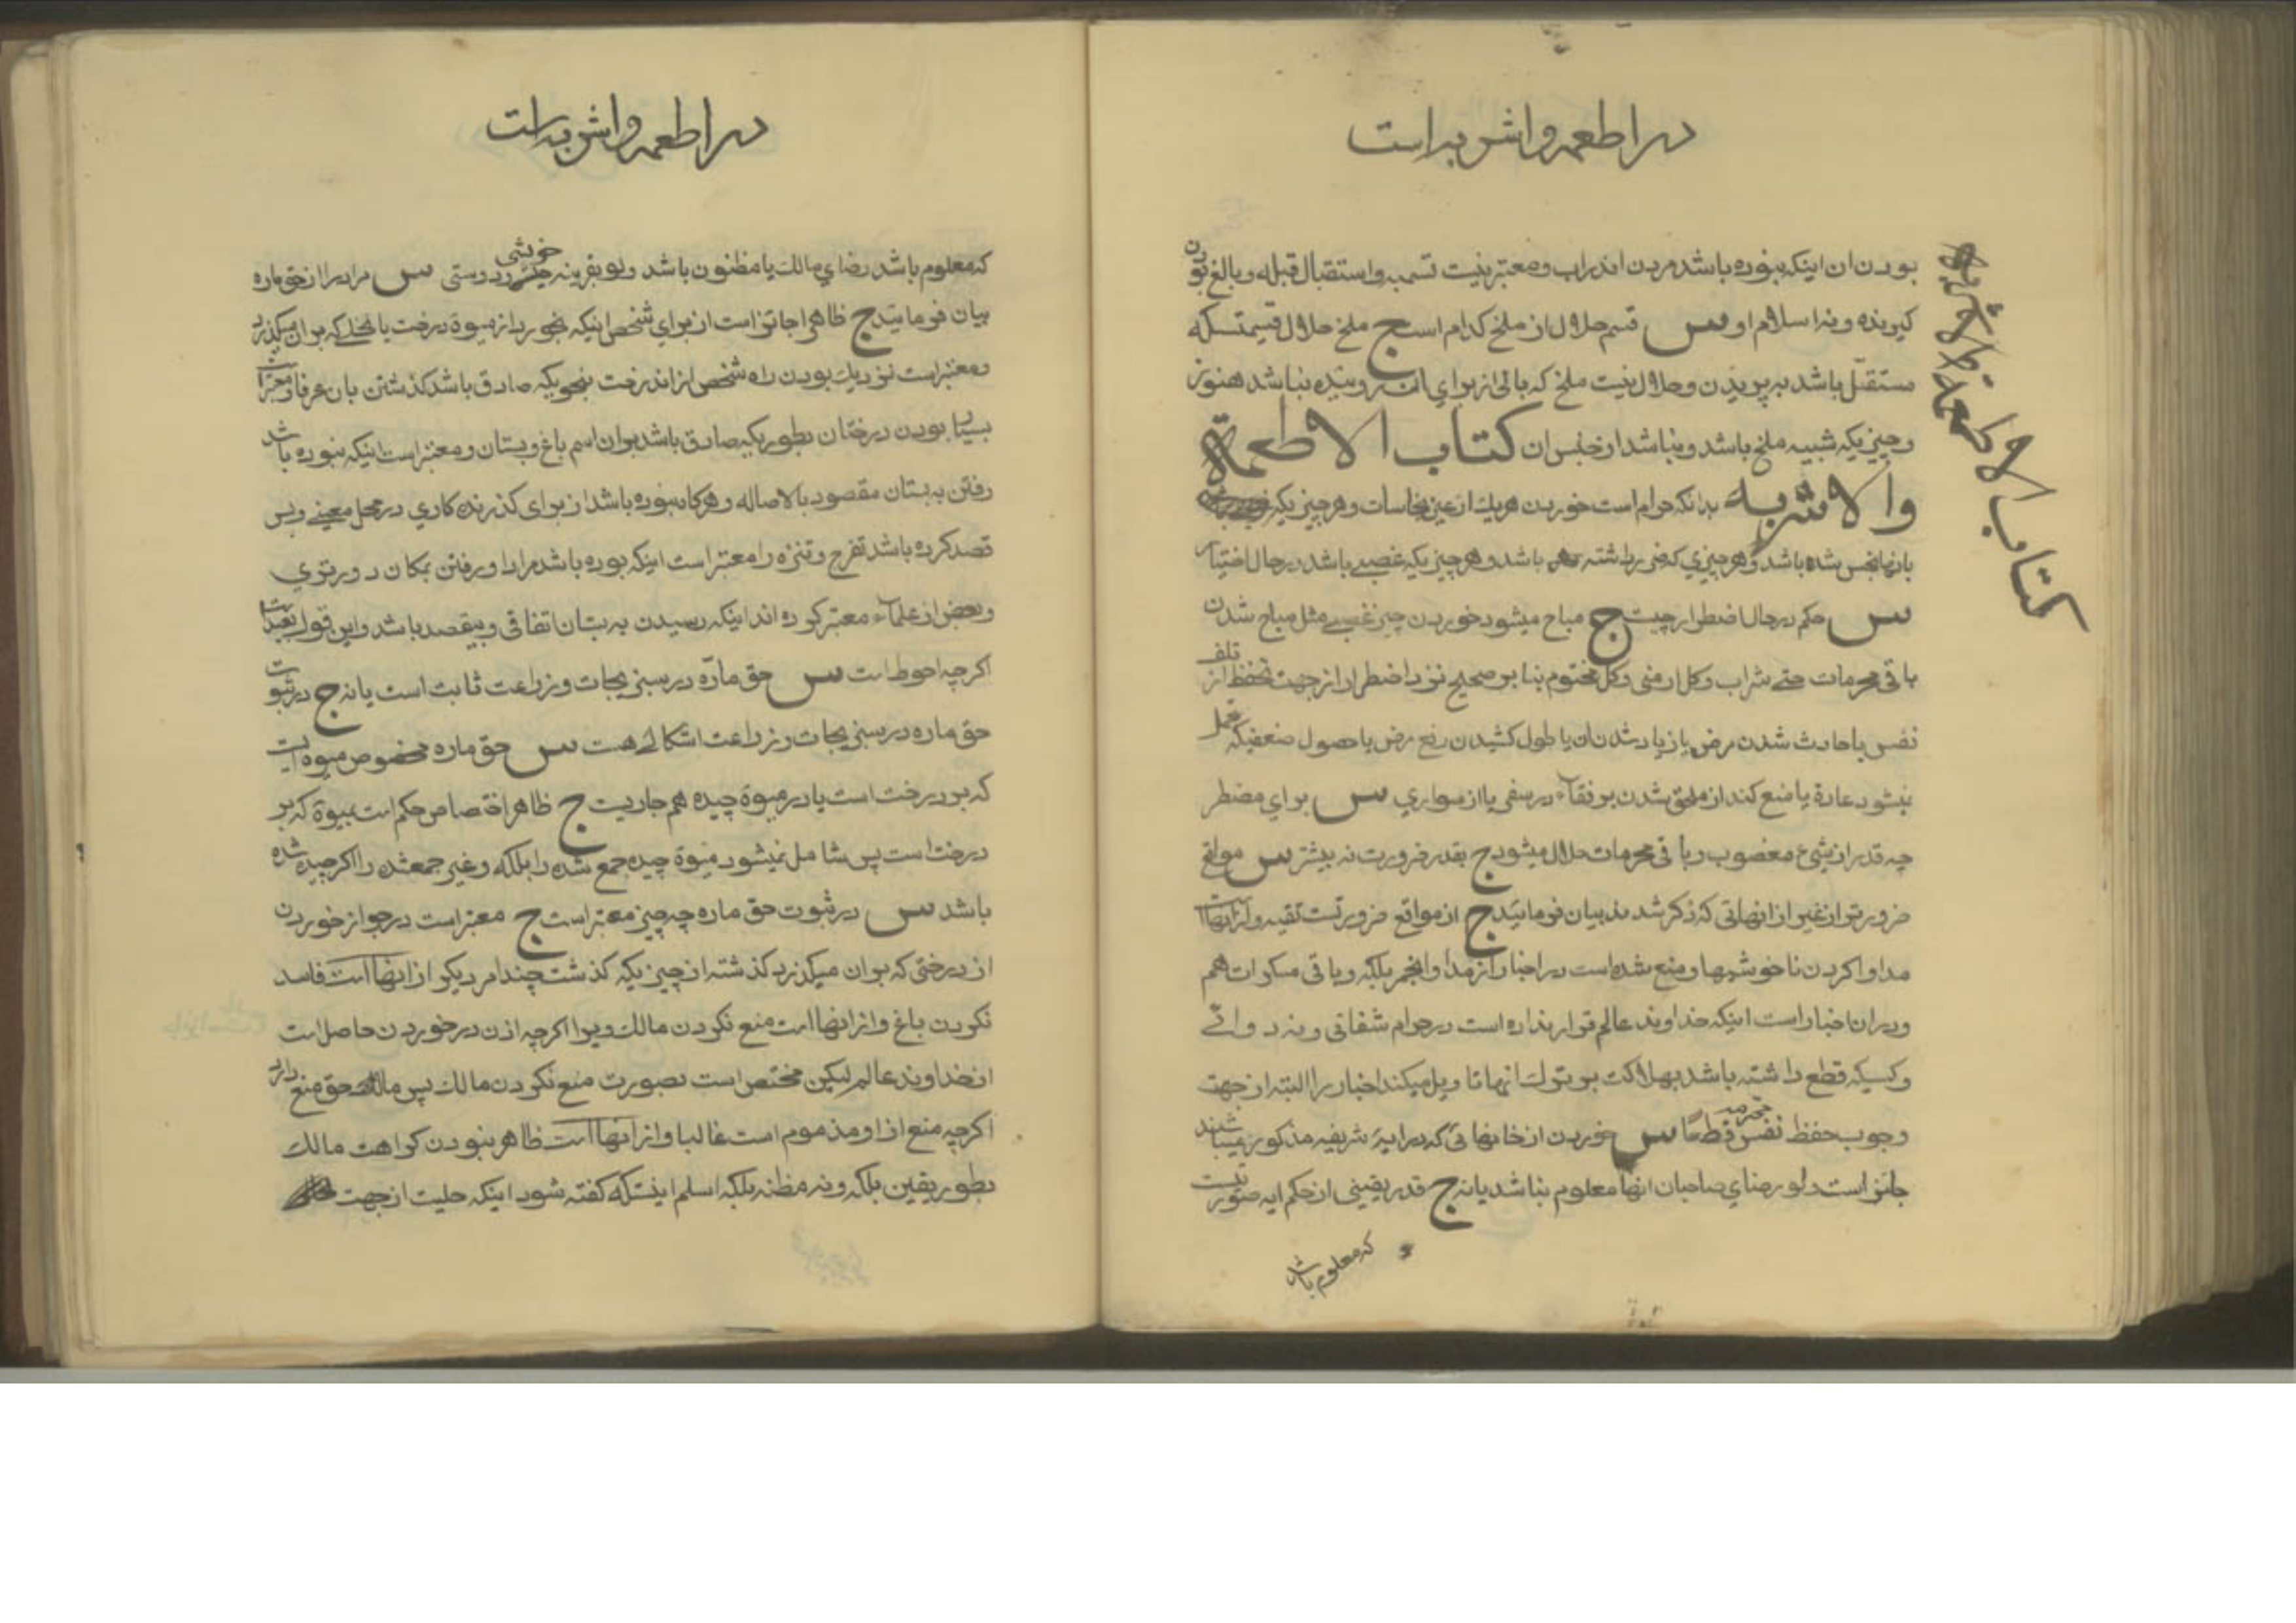 در اطعمه و اشربه است
بودن ان اینکه نبوده باشد مردن اندراب و معتبر نیست تسمیه و استقبال قبله و بالغ بودن
کیرنده و نه اسلام او س قسم حلال از ملخ کدام است ج ملخ حلال قسیمتسکه
مستقل باشد به پریدن و حلال نیست ملخ که بالی از برای ان روینده نباشد هنوز
و چیزیکه شبیه ملخ باشد و نباشد از جنس ان کتاب الاطعمة
والاشربه بدانکه حرام است خوردن هریك از عین نجاسات و هر چیزیکه
بانها نجس شده باشد و هر چیزی که ضرر داشته باشد و هر چیزیکه غصبی باشد در حال اختیار
س حکم در حال اضطرار چیست ج مباح میشود خوردن چیز غصبی مثل مباح شدن
باقی محرمات حتی شراب و کل ارمنی و کل مختوم بنا بر صحیح نزد اضطرار از جهت تحفظ از تلف
نفس یا حادث شدن مرض یا زیاد شدن ان یا طول کشیدن رفع مرض یا حصول ضعفیکه تحمل
نیشود عادة یا منع کند از ملحق شدن برفقاء در سفر یا از سواری س برای مضطر
چه قدر از شیء مغصوب و باقی محرمات حلال میشود ج بقدر ضرورت نه بیشتر س مواقع
ضرورتو از غیر از انهائی که ذکر شد بیان فرمائید ج از مواقع ضرورتست تقیه و از انهاا
مداوا کردن ناخوشیها و منع شده است در اخبار از مداوا بخمر بلکه و باقی مسکرات هم
و در ان اخبار است اینکه خداوند عالم قرار نداده است در حرام شفائی و نه دوائے
و کسیکه قطع داشته باشد بهلاکت بر ترك انها تاویل میکند اخبار را البته از جهت
وجوب حفظ نفس محرمه قطعًا س خوردن از خانهائی که در ایهٔ شریفه مذکور میباشند
جائز است ولو رضای صاحبان انها معلوم نباشد یا نه ج قدر یقینی از حکم ایه صورتیست
که معلوم باشد
کتاب الاطعمة والاشربة
در اطعمه و اشربه است
که معلوم باشد رضای مالك یا مظنون باشد ولو بقرینه خویشی و دوستی س مراد را از حق ماره
بیان فرمائید ج ظاهرا جائز است از برای شخص اینکه بخورد از میوة درخت یا نخل که بر ان میکذرد
و معتبر است نزدیك بودن راه شخص از ان درخت بنحویکه صادق باشد کذشتن بان عرفا و معتبر است
بسیار بودن درختان بطوریکه صادق باشد بران اسم باغ و بستان و معتبر است اینکه نبوده باشد
رفتن به بستان مقصود بالاصاله و هرکاه نبوده باشد از برای کذرنده کاری در محل معینی و بس
قصد کرده باشد تفرج و تنزه را معتبر است اینکه بوده باشد مرادا و رفتن بمکان دورتری
و بعض از علماء معتبر کرده اند اینکه رسیدن به بستان اتفاقی و بیقصد باشد و این قول بعید است
اکرچه احوط است س حق مارّه در سبزیجات و زراعت ثابت است یا نه ج در ثبوت
حق ماره در سبزیجات و زراعت اشکالی هست س حق ماره مخصوص میوه ایست
که بر درخت است یا در میوة چیده هم جاریست ج ظاهر اختصاص حکم است بمیوة که بر
درخت است پس شامل نمیشود میوة چیده جمع شده را بلکه و غیر جمعشده را اکر چیده شده
باشد س در ثبوت حق ماره چه چیز معتبر است ج معتبر است در جواز خوردن
از درختی که بران میکذرد کذشته از چیزیکه کذشت چند امر دیکر از انهاا است فاسد
نکردن باغ و از انهاا است منع نکردن مالك ویرا اکرچه اذن در خوردن حاصل است
از خداوند عالم لیکن مختص است بصورت منع نکردن مالك پس مالك حق منع دارد
اکرچه منع از او مذموم است غالبا و از انهاا است ظاهر نبودن کراهت مالك
بطور یقین بلکه و نه مظنه بلکه اسلم اینستکه کفته شود اینکه حلیت از جهت